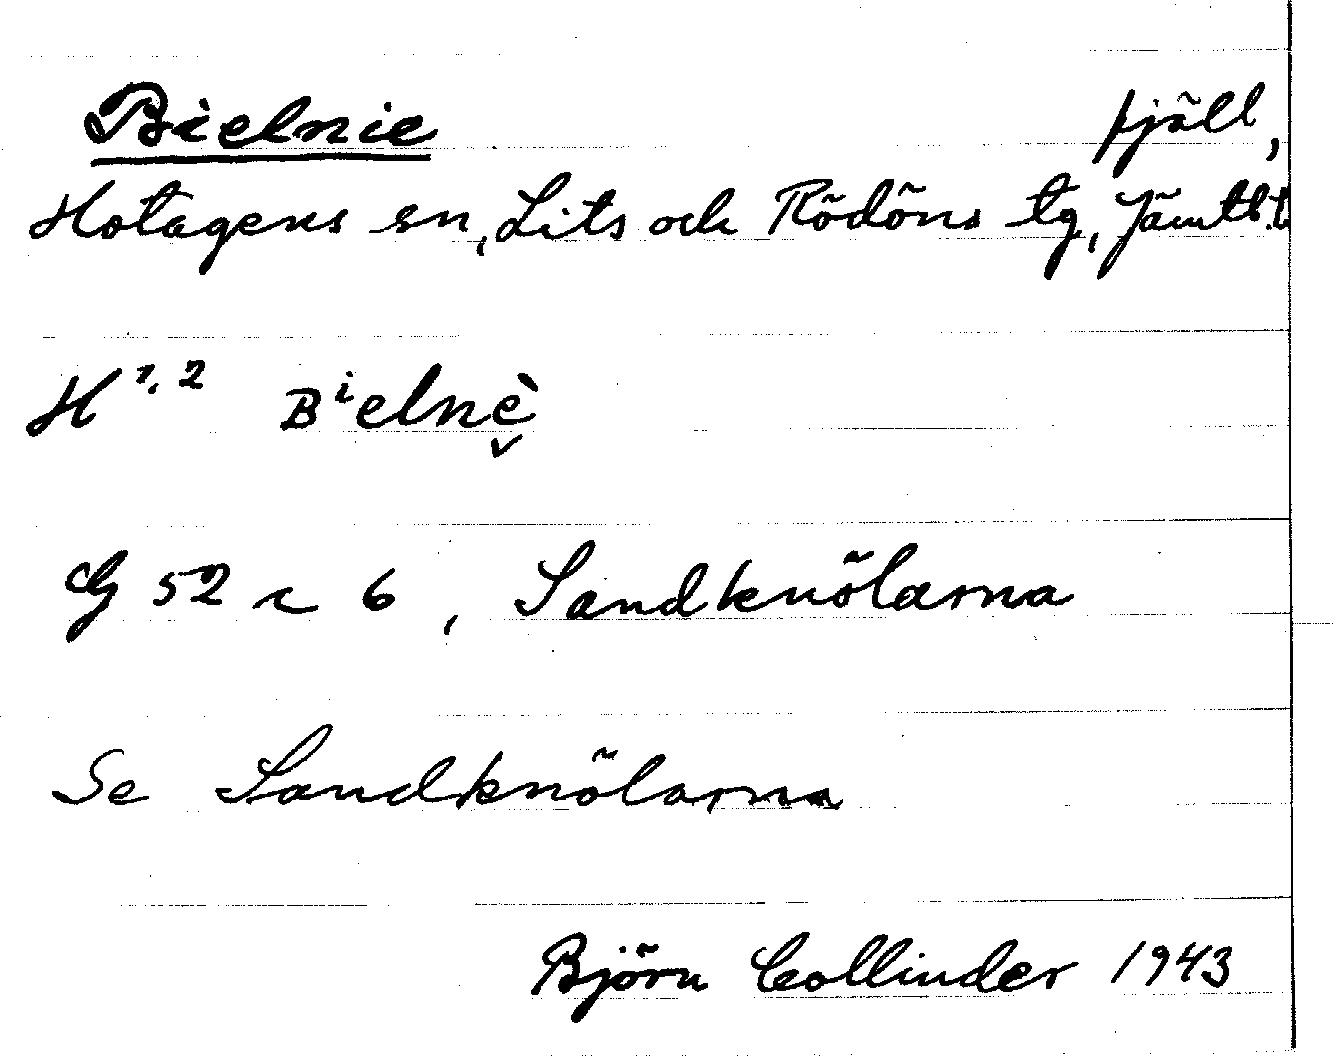 Bielnie fjäll,
Hotagens sn, Lits och Rödöns tg, Jämtl. l.
H 1, 2 Bⁱelnè̬
G 52 c 6, Sandknölarna
Se Sandknölarna
Björn Collinder 1943